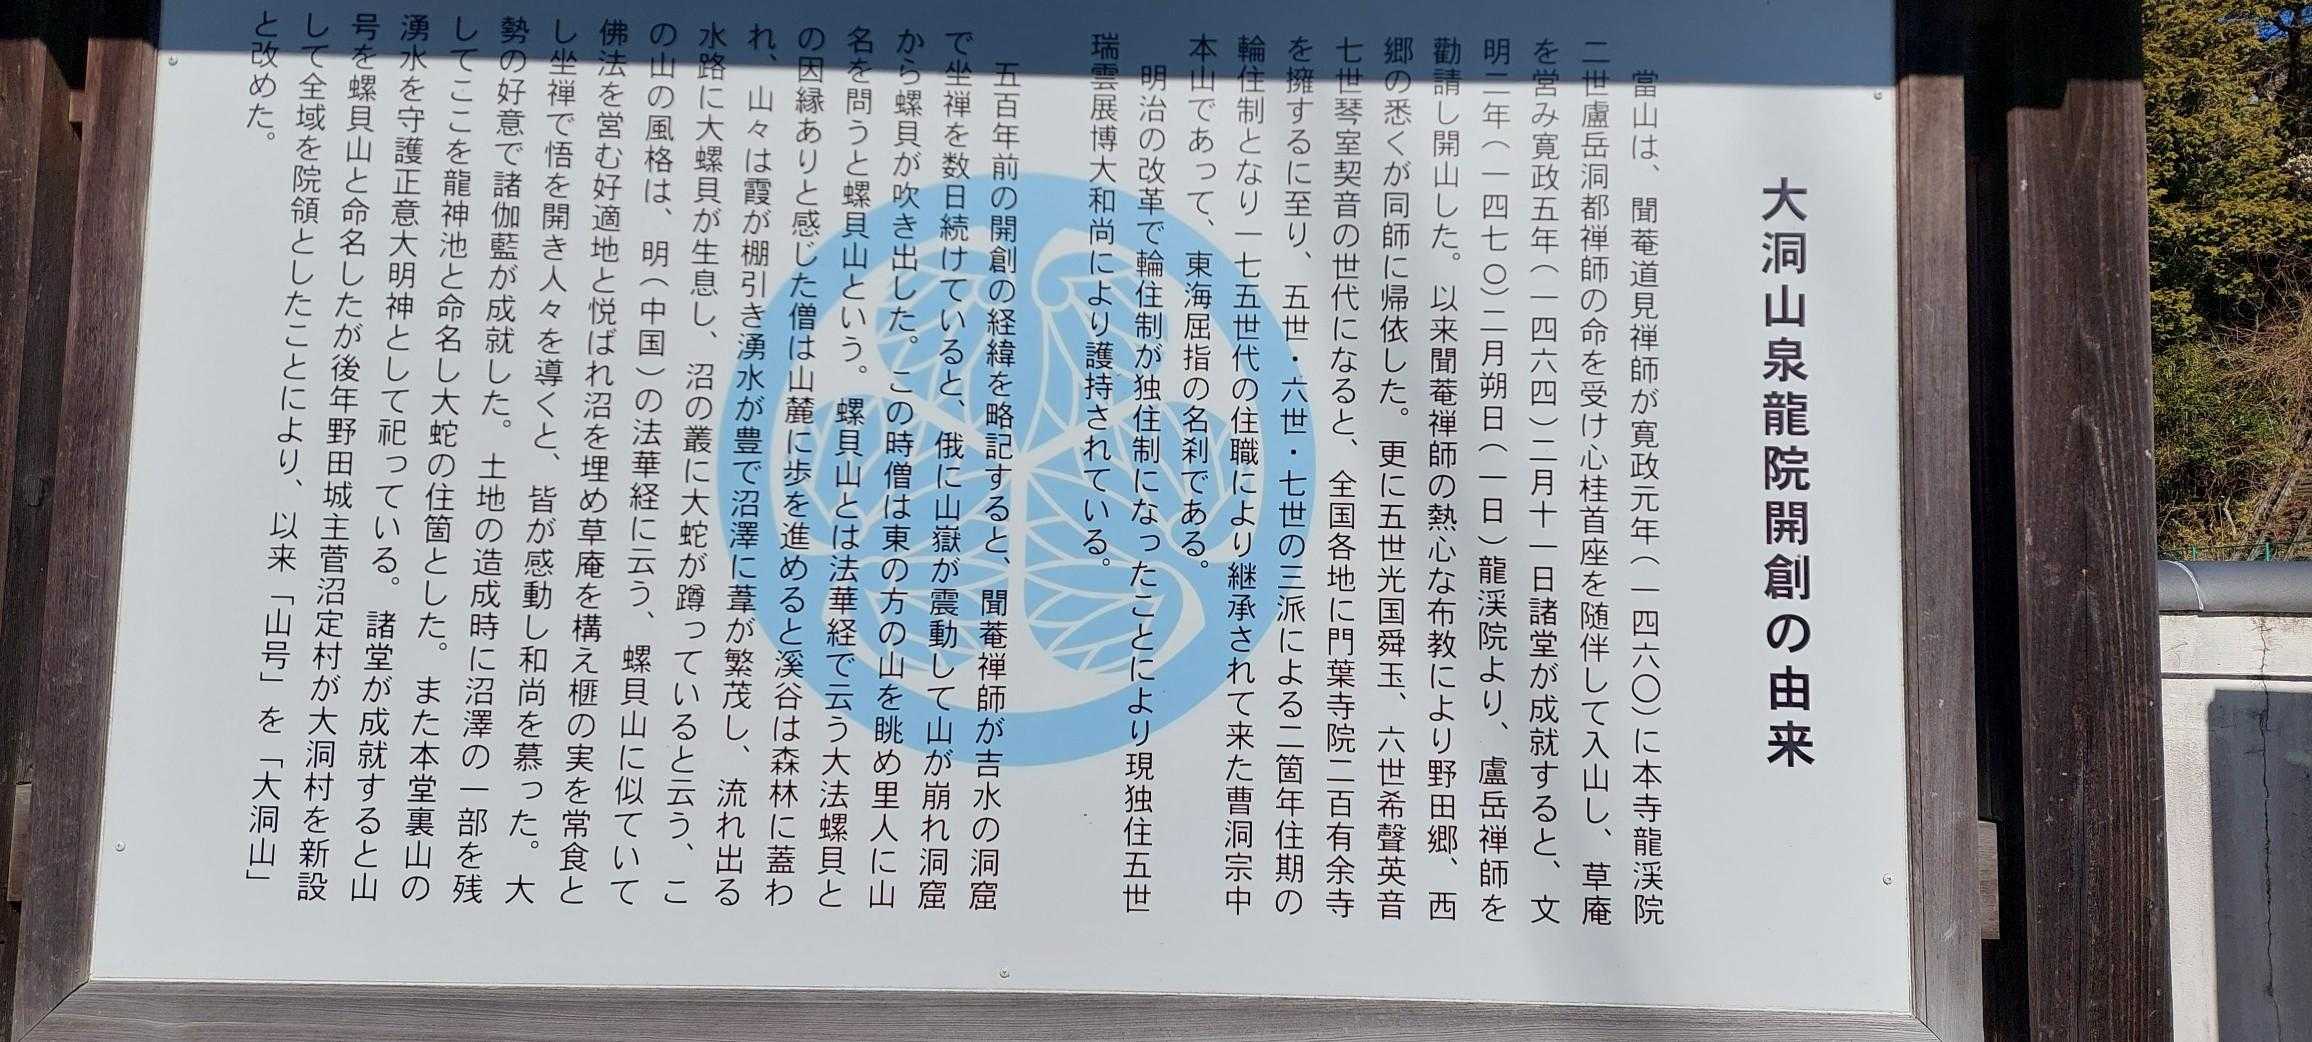 大洞山泉龍院開創の由来
當山は、聞菴道見禅師が寛政元年（一四六〇）に本寺龍渓院
二世盧岳洞都禅師の命を受け心桂首座を随伴して入山し、草庵
を営み寛政五年（一四六四）二月十一日諸堂が成就すると、文
明二年（一四七〇）二月朔日（一日）龍渓院より、盧岳禅師を
勸請し開山した。以来聞菴禅師の熱心な布教により野田郷、西
郷の悉くが同師に帰依した。更に五世光国舜玉、六世希聲英音
七世琴室契音の世代になると、全国各地に門葉寺院二百有余寺
を擁するに至り、五世・六世・七世の三派による二箇年住期の
輪住制となり一七五世代の住職により継承されて来た曹洞宗中
本山であって、東海屈指の名刹である。
明治の改革で輪住制が独住制になったことにより現独住五世
瑞雲展博大和尚により護持されている。
五百年前の開創の経緯を略記すると、聞菴禅師が吉水の洞窟
で坐禅を数日続けていると、俄に山嶽が震動して山が崩れ洞窟
から螺貝が吹き出した。この時僧は東の方の山を眺め里人に山
名を問うと螺貝山という。螺貝山とは法華経で云う大法螺貝と
の因縁ありと感じた僧は山麓に歩を進めると溪谷は森林に蓋わ
れ、山々は霞が棚引き湧水が豊で沼澤に葦が繁茂し、流れ出る
水路に大螺貝が生息し、沼の叢に大蛇が蹲っていると云う、こ
の山の風格は、明（中国）の法華経に云う、螺貝山に似ていて
佛法を営む好適地と悦ばれ沼を埋め草庵を構え榧の実を常食と
し坐禅で悟を開き人々を導くと、皆が感動し和尚を慕った。大
勢の好意で諸伽藍が成就した。土地の造成時に沼澤の一部を残
してここを龍神池と命名し大蛇の住箇とした。また本堂裏山の
湧水を守護正意大明神として祀っている。諸堂が成就すると山
号を螺貝山と命名したが後年野田城主菅沼定村が大洞村を新設
して全域を院領としたことにより、以来「山号」を「大洞山」
と改めた。